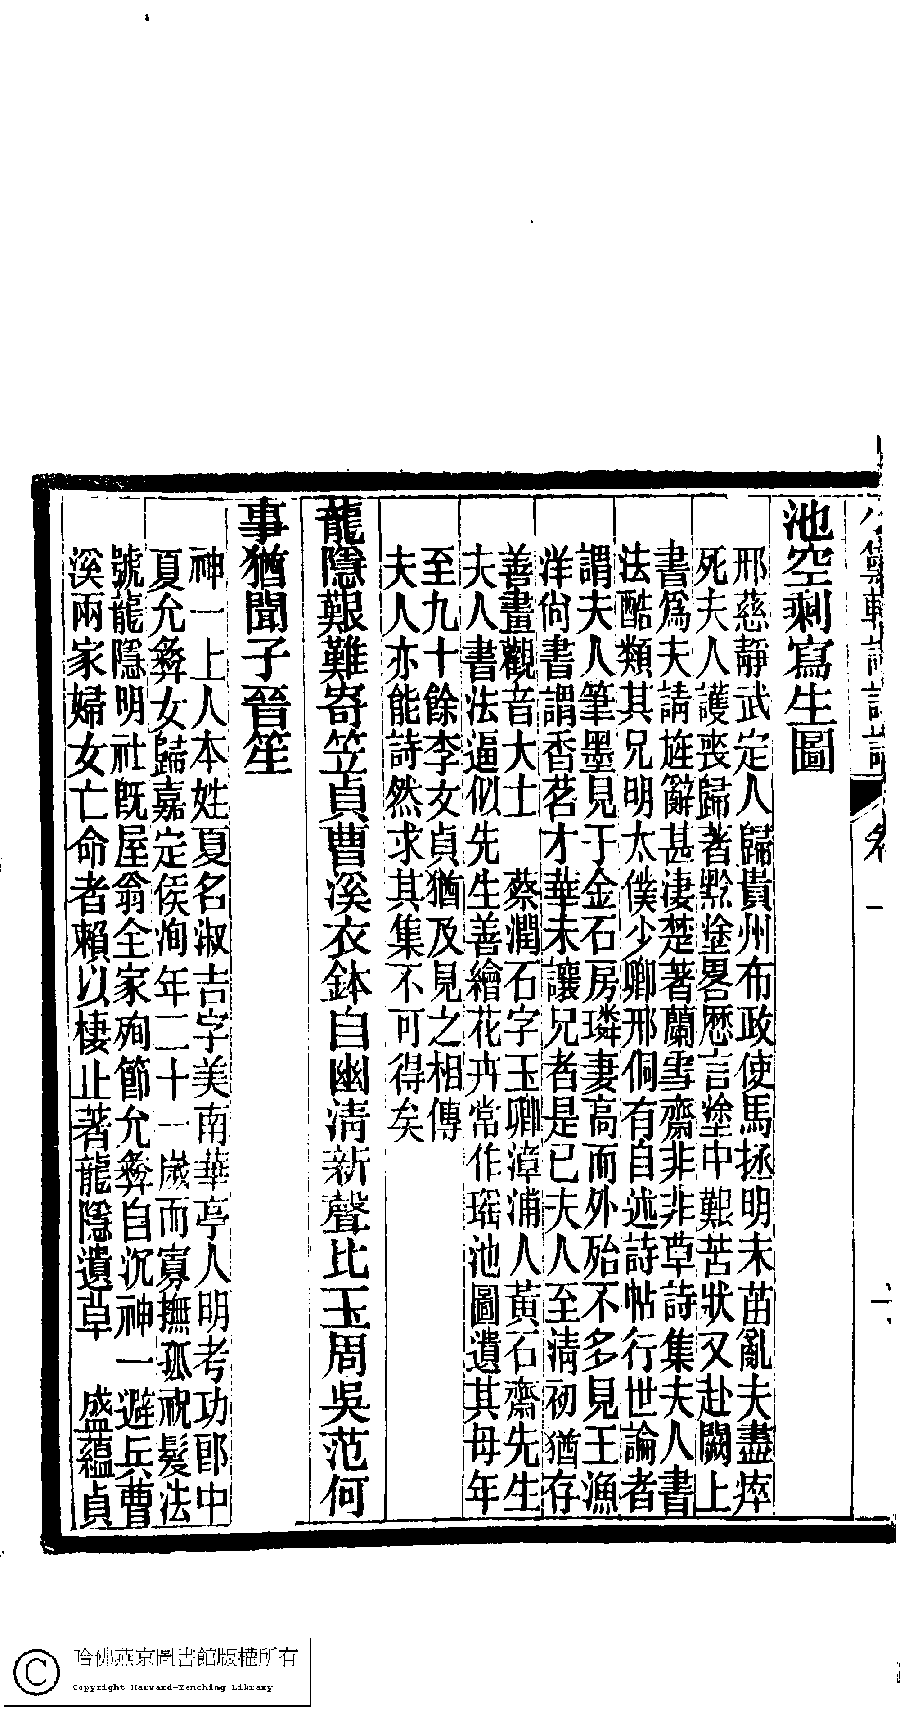 池空剩寫生圖
邢慈靜武定人歸貴州布政使馬拯明末苗亂夫盡瘁
死夫人護喪歸著黔塗畧歷言塗中艱苦狀又赴闕上
書爲夫請旌辭甚淒楚著蘭雪齋非非草詩集夫人書
法酷類其兄明太僕少卿邢侗有自述詩帖行世論者
謂夫人筆墨見于金石房璘妻高而外殆不多見王漁
洋尙書謂香茗才華未讓兄者是已夫人至清初猶存
善畫觀音大士　蔡潤石字玉卿漳浦人黃石齋先生
夫人書法逼似先生善繪花卉常作瑶池圖遺其母年
至九十餘李女貞猶及見之相傳
夫人亦能詩然求其集不可得矣
龍隱艱難寄笠貞曹溪衣鉢自幽清新聲比玉周吳范何
事猶聞子晉笙
神一上人本姓夏名淑吉字美南華亭人明考功郎中
夏允彝女歸嘉定侯洵年二十一歲而寡撫孤祝髮法
號龍隱明社旣屋翁全家殉節允彝自沉神一避兵曹
溪兩家婦女亡命者賴以棲止著龍隱遺草　盛蘊貞
哈佛燕京圖書館版權所有
Copyright Harvard-Yenching Library